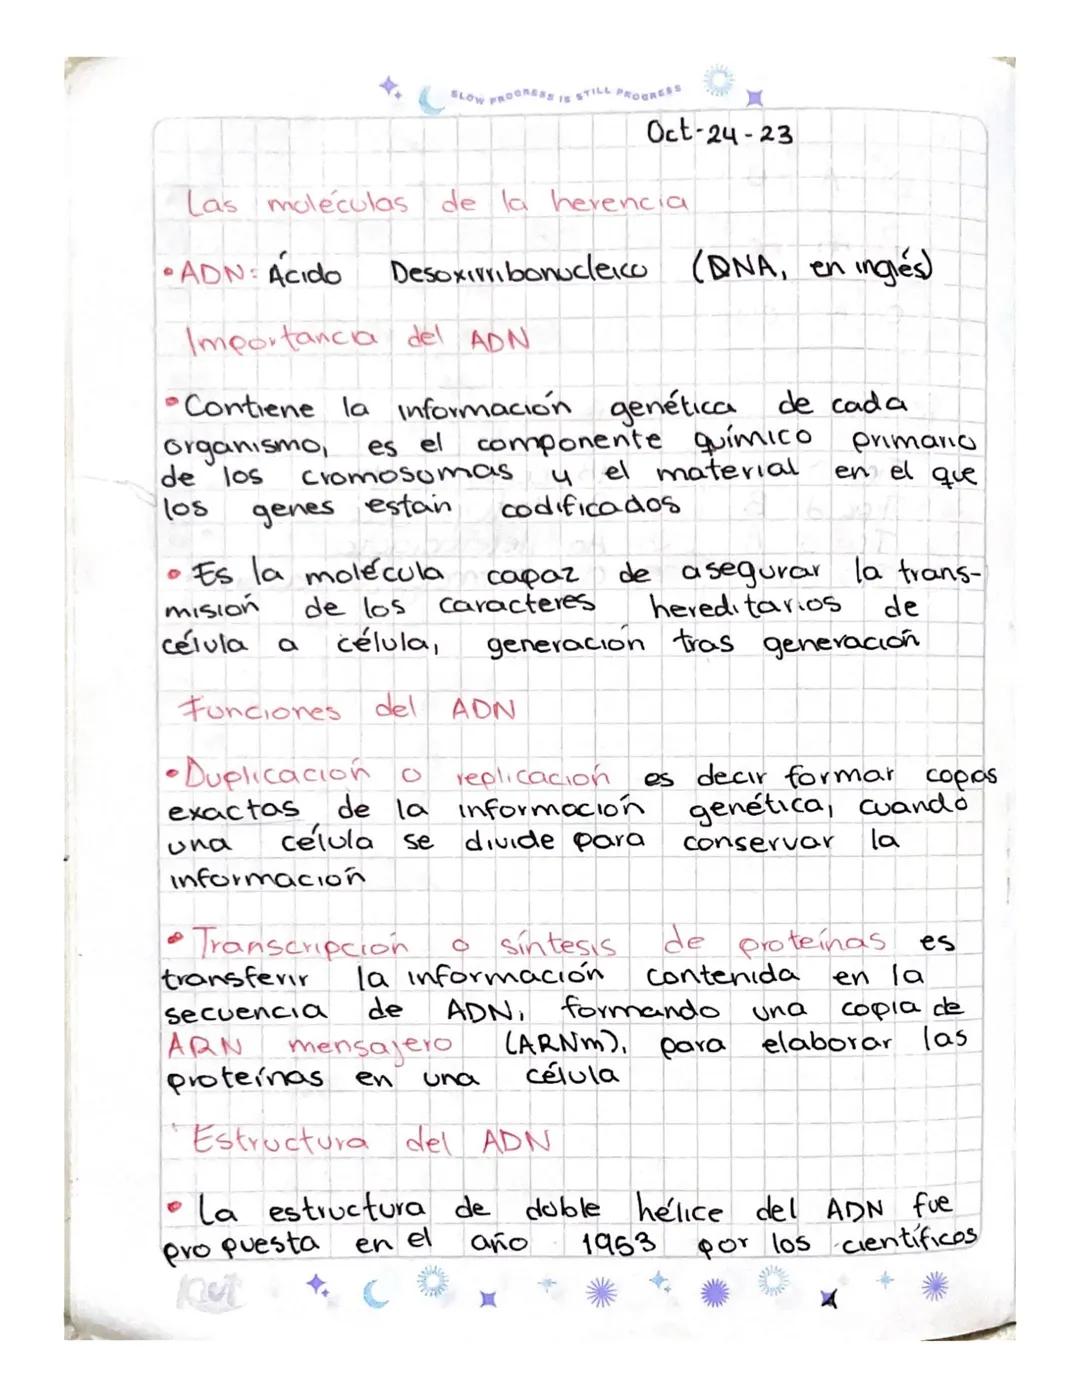 SLOW PROGRESS IS STILL PROGRESS
Oct-24-23
Las moléculas de la herencia
•ADN: Ácido Desoxirribonucleico (DNA, en inglés)
Importancia del ADN
•Contiene la información genética de cada
organismo, es el componente químico primario
de los cromosomas y el material en el que
los genes están codificados
•Es la molécula capaz de asegurar la trans-
misión de los caracteres hereditarios de
célula a célula, generación tras generación
Funciones del ADN
•Duplicación o replicación es decir formar copas
exactas de la información genética, cuando
una célula se divide para conservar la
información
•Transcripción o síntesis de proteínas es
transferir la información contenida en la
secuencia de ADN, formando una copia de
ARN mensajero (ARNm), para elaborar las
proteínas en una célula
Estructura del ADN
•La estructura de doble hélice del ADN fue
propuesta en el año 1953 por los científicos